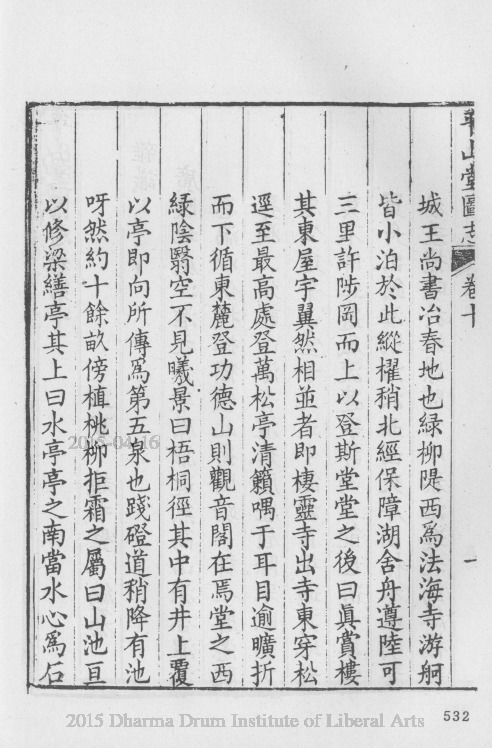 平山堂圖志 卷十 一
城王尚書冶春地也綠柳隄西爲法海寺游舸
皆小泊於此縱櫂稍北經保障湖舍舟遵陸可
三里許陟岡而上以登斯堂堂之後曰眞賞樓
其東屋宇翼然相並者即棲靈寺出寺東穿松
逕至最高處登萬松亭清籟喁于耳目逾曠折
而下循東麓登功德山則觀音閣在焉堂之西
綠陰翳空不見曦景曰梧桐徑其中有井上覆
以亭即向所傳爲第五泉也踐磴道稍降有池
呀然約十餘畝傍植桃柳拒霜之屬曰山池亘
以修梁繕亭其上曰水亭亭之南當水心爲石
2015-04-16
532
2015 Dharma Drum Institute of Liberal Arts